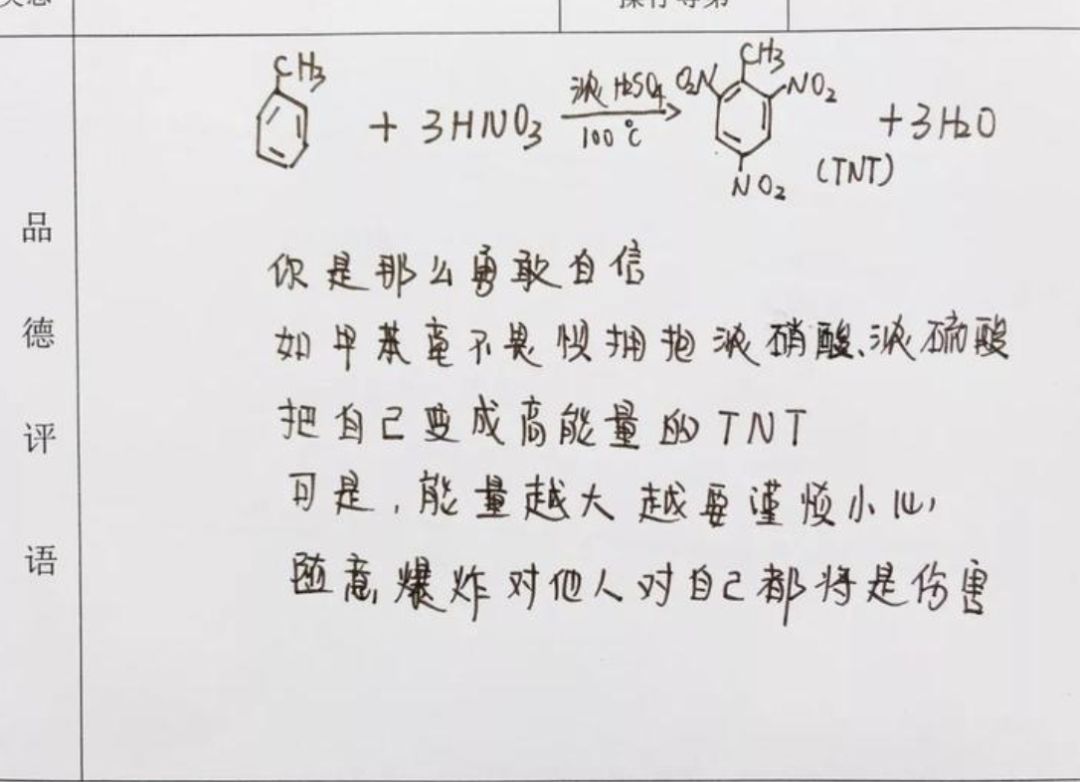 操行等第
CH3
+ 3HNO3 浓H2SO4 100℃ → O2N CH3 NO2 NO2 (TNT) + 3H2O
品德评语
你是那么勇敢自信
如甲苯毫不畏惧拥抱浓硝酸、浓硫酸
把自己变成高能量的TNT
可是,能量越大越要谨慎小心
随意爆炸对他人对自己都将是伤害